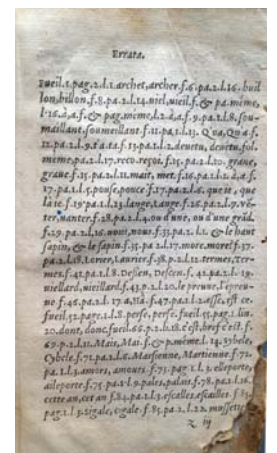 Errata.
Fueil.1.pag.2.l.1.archet,archer.f.6.pa.2.l.16.buil
lon,billon.f.8.pa.2.l.14.viel,vieil.f. & pa.même,
l'16.à,a.f. & pag.même,l.2.à,a.f.9.pa.1.l.8.sou-
maillant.soumeillant.f.11.pa.1.l.13. Q'ua,Qu'a.f.
12.pa.1.l.9.t'a,ta.f.13.pa.1.l.2.devetu,devetu,fol.
meme,pa.2.l.17.reco.reçoi.f.15.pa.1.l.10.grane,
grave.f.15.pa.2.l.11.mais,met.f.16.pa.2.l.2.à,a.f.
17.pa.1.l.5.pouse,pouce.f.17.pa.2.l.6.que ie, que
la ie.f.19.pa.1.l.23.lange,Lange.f.26.pa.2.l.9.
ter,vanter.f.28.pa.2.l.4.ou d'une, ou d'une grãd.
f.29.pa.2.l.16.vous,nous.f.33.pa.2.l.1. & le haut
sapin, & le sapin.f.35.pa.2.l.17.more,moret.f.37.
pa.2.l.18.Lorier,Laurier.f.38.p.2.l.12.termes,Ter-
mes.f.41.pa.1.l.8.Desien,Descen.f.42.pa.2.l.19.
viellard,vieillard.f.43.p.2.l.20.le preuve,l'epreu-
ve f.46.pa.2.l.17.a,Ha.f.47.pa.1.l.2.asse,est ce.
fueil.52.page.1.l.8.perse, perse.fueil.55.pag.1.lin.
20.dont, donc.fueil.66.p.2.l.18.c'est,bref c'est.f.
69.p.1.l.11.Mais,Mai.f. & p.même.l.14.Sybele,
Cybele.f.71.pa.1.l.6.Marsienne,Martienne.f.72.
pa.1.l.3.amors,amours.f.73.pag.1.l.3.elleporte,
aileporte.f.75 pa.1.l.9.pales,palais.f.78.pa.1.l.16.
cette an,cet an f.84.pa.1.l.3.escalles,escailles.f.85
pag.1.l.3.zigale,cigale.f.85.pa.2.l.22.mussette
z iij